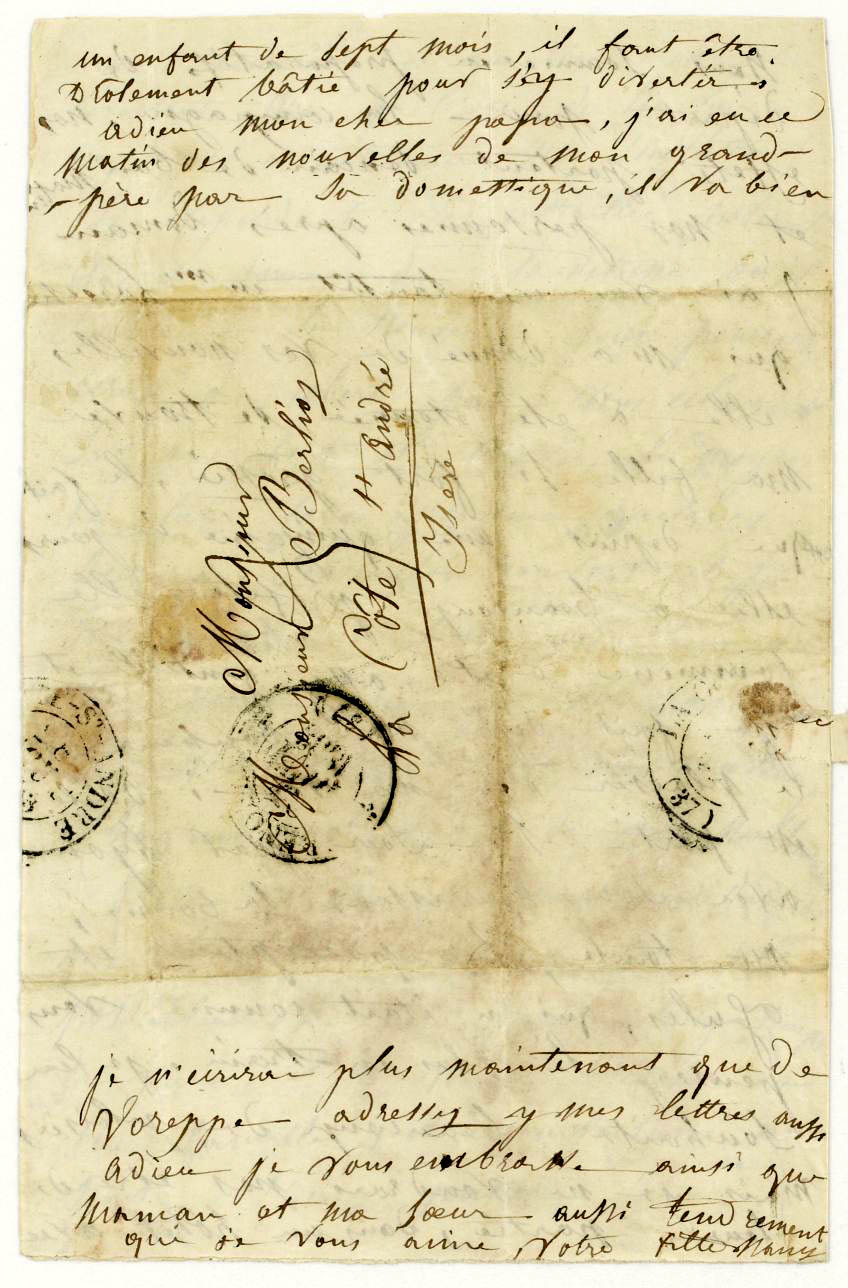 un enfant de sept mois, il faut être
Drolement bâtie pour s'y divertir ;
adieu mon cher papa, j'ai eu ce
matin des nouvelles de mon grand-
-père par sa domestique, il va bien
Monsieur
Monsieur Berlioz
La Côte St André
Isère
ST ANDRÉ
LA C
(37)
je n'écrirai plus maintenant que de
Voreppe adressez y mes lettres aussi
adieu je vous embrasse ainsi que
maman et ma sœur aussi tendrement
que je vous aime, votre fille Nancy